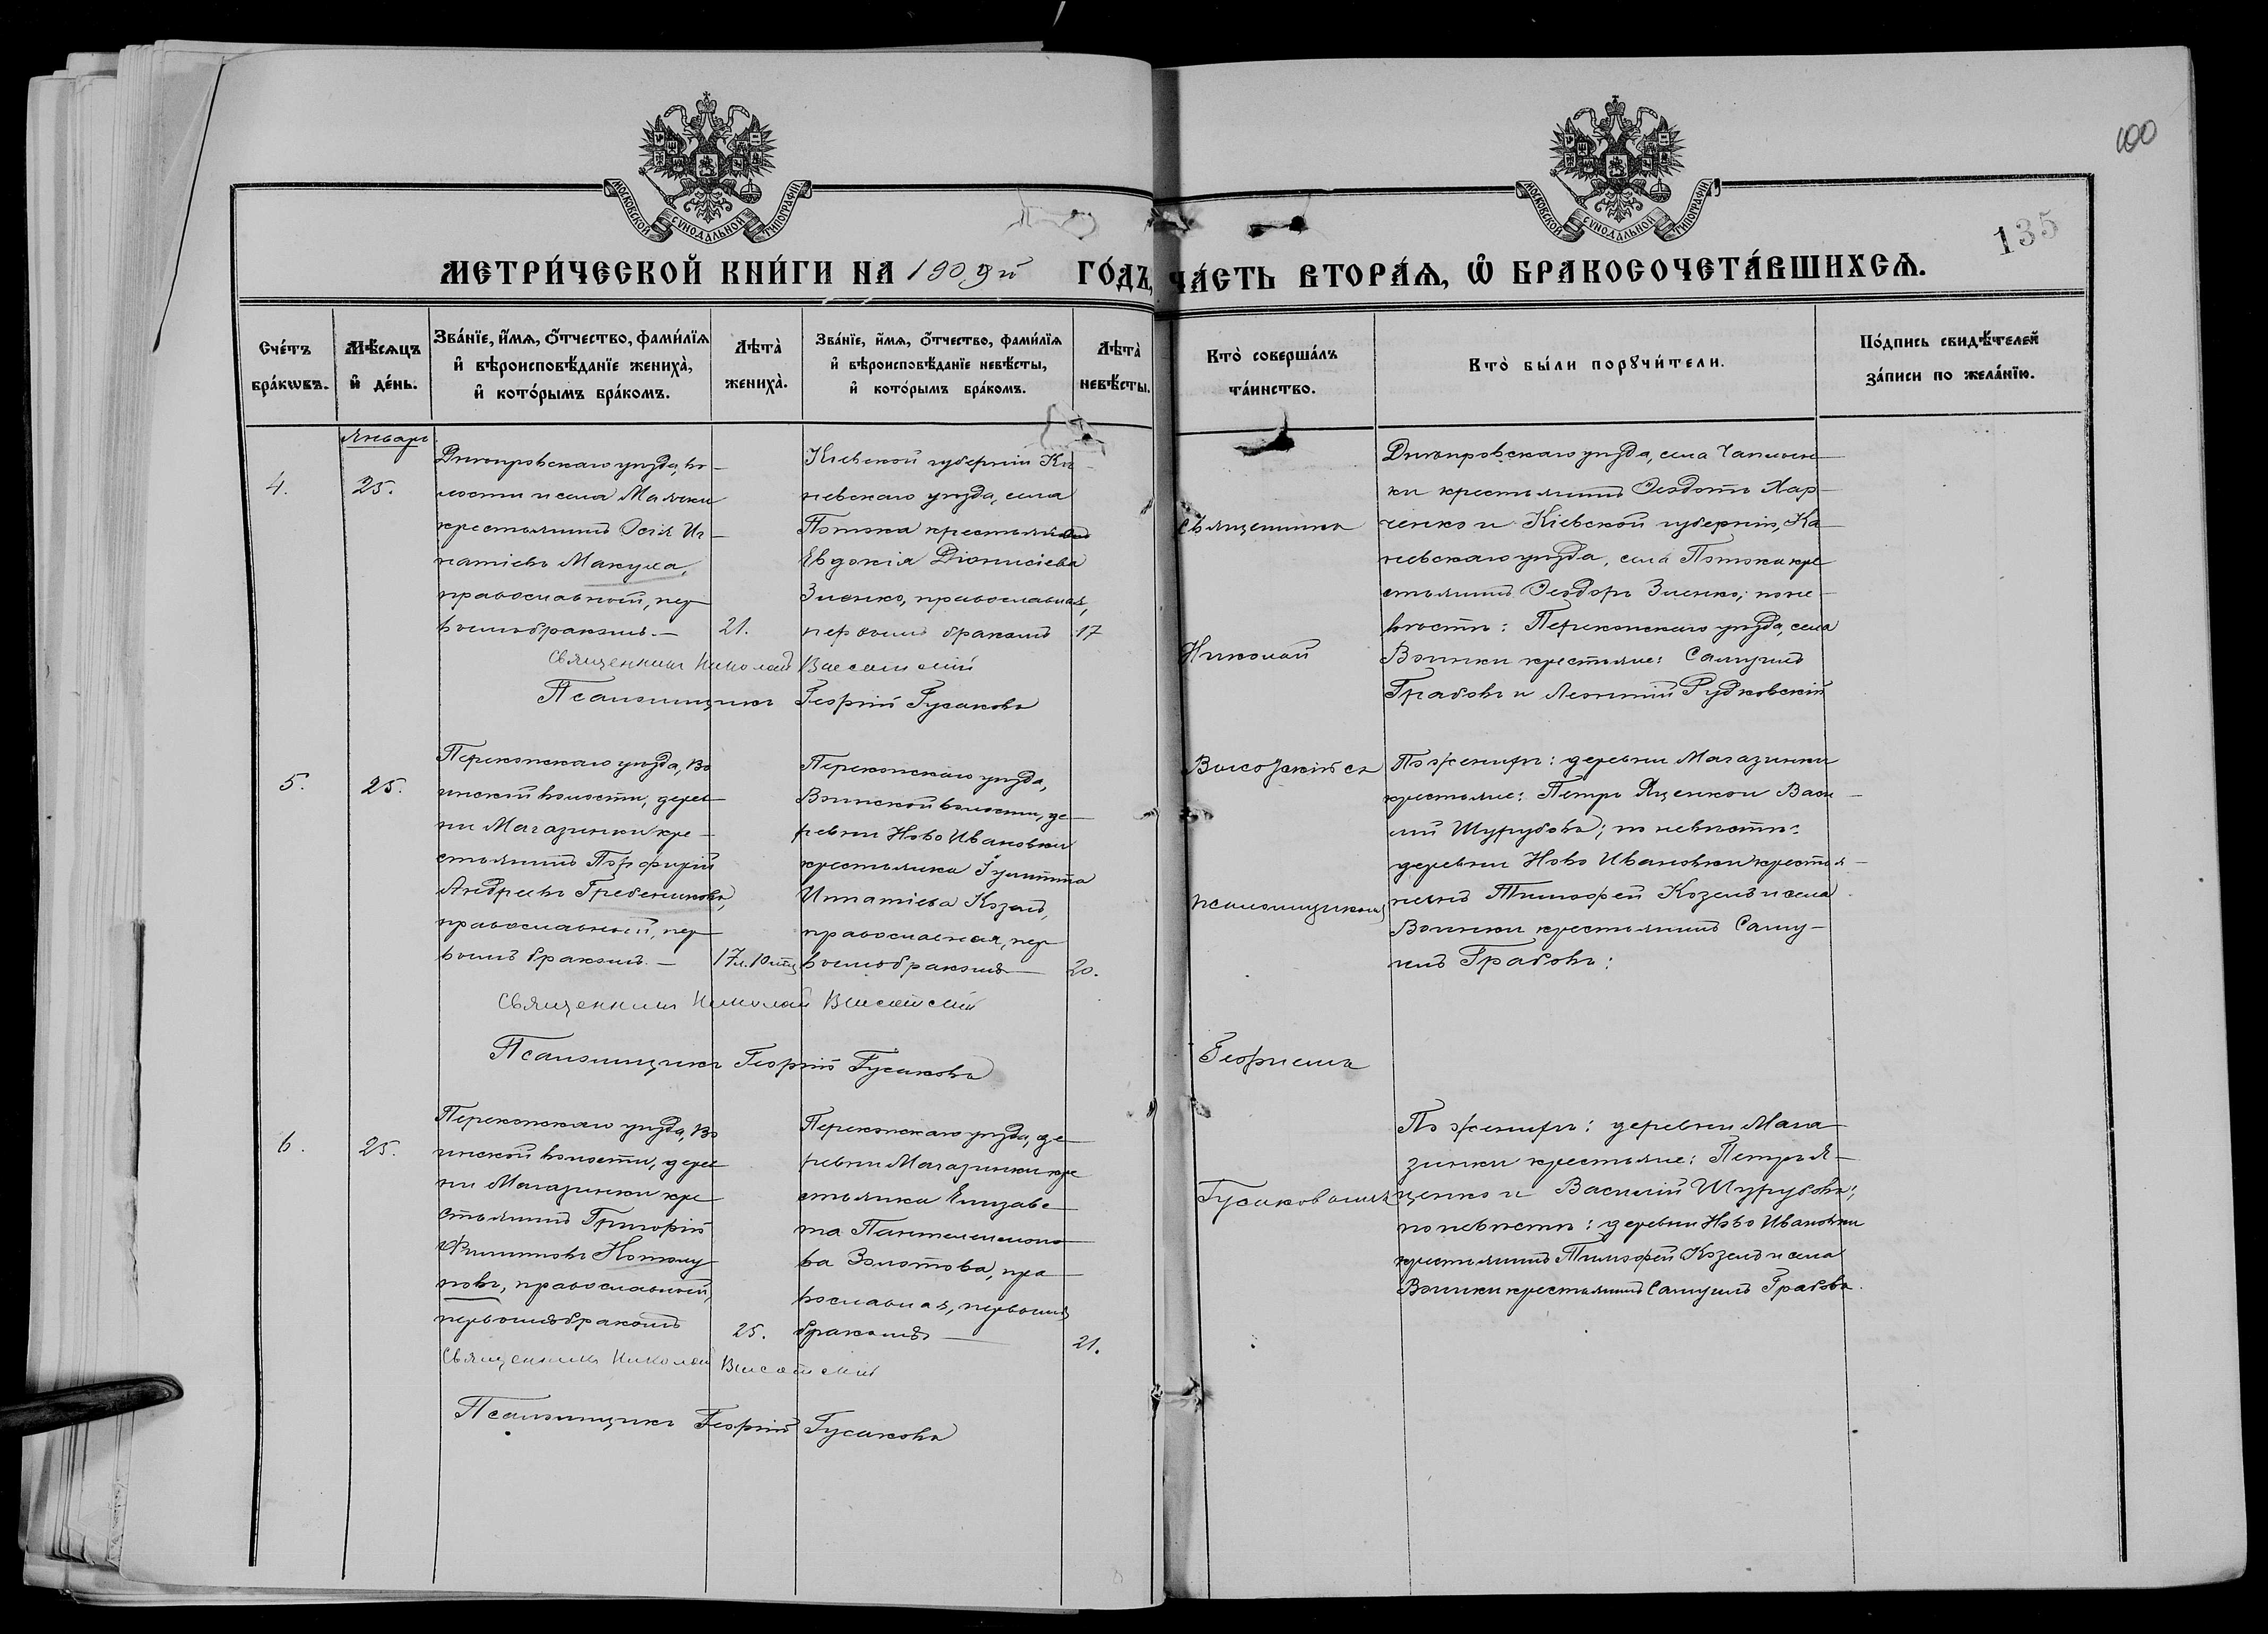 100
135
МОСКОВСКОЙ СѴНОДАЛЬНОЙ ТИПОГРАФІИ
МОСКОВСКОЙ СѴНОДАЛЬНОЙ ТИПОГРАФІИ
МЕТРИ́ЧЕСКОЙ КНИ́ГИ НА 1909й ГО́ДЪ, ЧА́СТЬ ВТОРА́Ѧ, Ѽ БРАКОСОЧЕТА́ВШИХСѦ.
Сче́тъ бра́кѡвъ.
Мѣ́сѧцъ и҆ де́нь.
Зва́нїе, и҆́мѧ, ѻ҆́тчество, фами́лїѧ
и҆ вѣроисповѣ́данїе жениха̀,
и҆ кото́рымъ бра́комъ.
Лѣта̀ жениха̀.
Зва́нїе, и҆́мѧ, ѻ҆́тчество, фами́лїѧ
и҆ вѣроисповѣ́данїе невѣ́сты,
и҆ кото́рымъ бра́комъ.
Лѣта̀ невѣ́сты.
Кто̀ соверша́лъ та́инство.
Кто̀ бы́ли порꙋчи́тели.
По́дпись свидѣ́телей за́писи по жела́нїю.
Январь
4.
25.
Днѣпровскаго уѣзда, во-
лости и села Маячки
крестьянинъ Осія Иг-
натіевъ Макуха,
православный, пер
вымъ бракомъ.—
21.
Кіевской губерніи Ка-
невскаго уѣзда, села
Потока крестьянка
Евдокія Діонисіева
Зленко, православная,
первымъ бракомъ
17
Священникъ Николай Высотскій
Псаломщикъ Георгій Гусаковъ
Днѣпровскаго уѣзда, села Чаплин-
ки крестьянинъ Ѳеодотъ Хар-
ченко и Кіевской губерніи, Ка-
невскаго уѣзда, села Потока кре
стьянинъ Ѳеодоръ Зленко; по не-
вѣстѣ: Перекопскаго уѣзда, села
Воинки крестьяне: Самуилъ
Грабовъ и Леонтій Рудковскій
5.
25.
Перекопскаго уѣзда, Во
инской волости, дерев-
ни Магазинки кре-
стьянинъ Порфирій
Андреевъ Гребениковъ,
православный, пер
вымъ бракомъ.—
17л. 10 мѣс.
Перекопскаго уѣзда,
Воинской волости, де-
ревни Ново Ивановки
крестьянка Іулитта
Игнатіева Козелъ,
православная, пер
вымъ бракомъ—
20.
Священникъ Николай Высотскій
Псаломщикъ Георгій Гусаковъ
По женихѣ: деревни Магазинки
крестьяне: Петръ Яценко и Васи-
лій Шурубовъ; по невѣстѣ:
деревни Ново Ивановки крестья-
нинъ Тимофей Козелъ и села
Воинки крестьянинъ Саму-
илъ Грабовъ:
6.
25.
Перекопскаго уѣзда, Во
инской волости, дерев
ни Магазинки кре
стьянинъ Григорій
Филипповъ Котолу
повъ, православный,
первымъ бракомъ
25.
Перекопскаго уѣзда, де-
ревни Магазинки кре
стьянка Елизаве-
та Пантелеимоно-
ва Золотова, пра-
вославная, первымъ
бракомъ—
21.
Священникъ Николай Высотскій
Псаломщикъ Георгій Гусаковъ
По женихѣ: деревни Мага-
зинки крестьяне: Петръ Я-
ценко и Василій Шурубовъ;
по невѣстѣ: деревни Ново Ивановки
крестьянинъ Тимофей Козелъ и села
Воинки крестьянинъ Самуилъ Грабовъ.
Священникъ
Николай
Высотскій съ
псаломщикомъ
Георгіемъ
Гусаковымъ